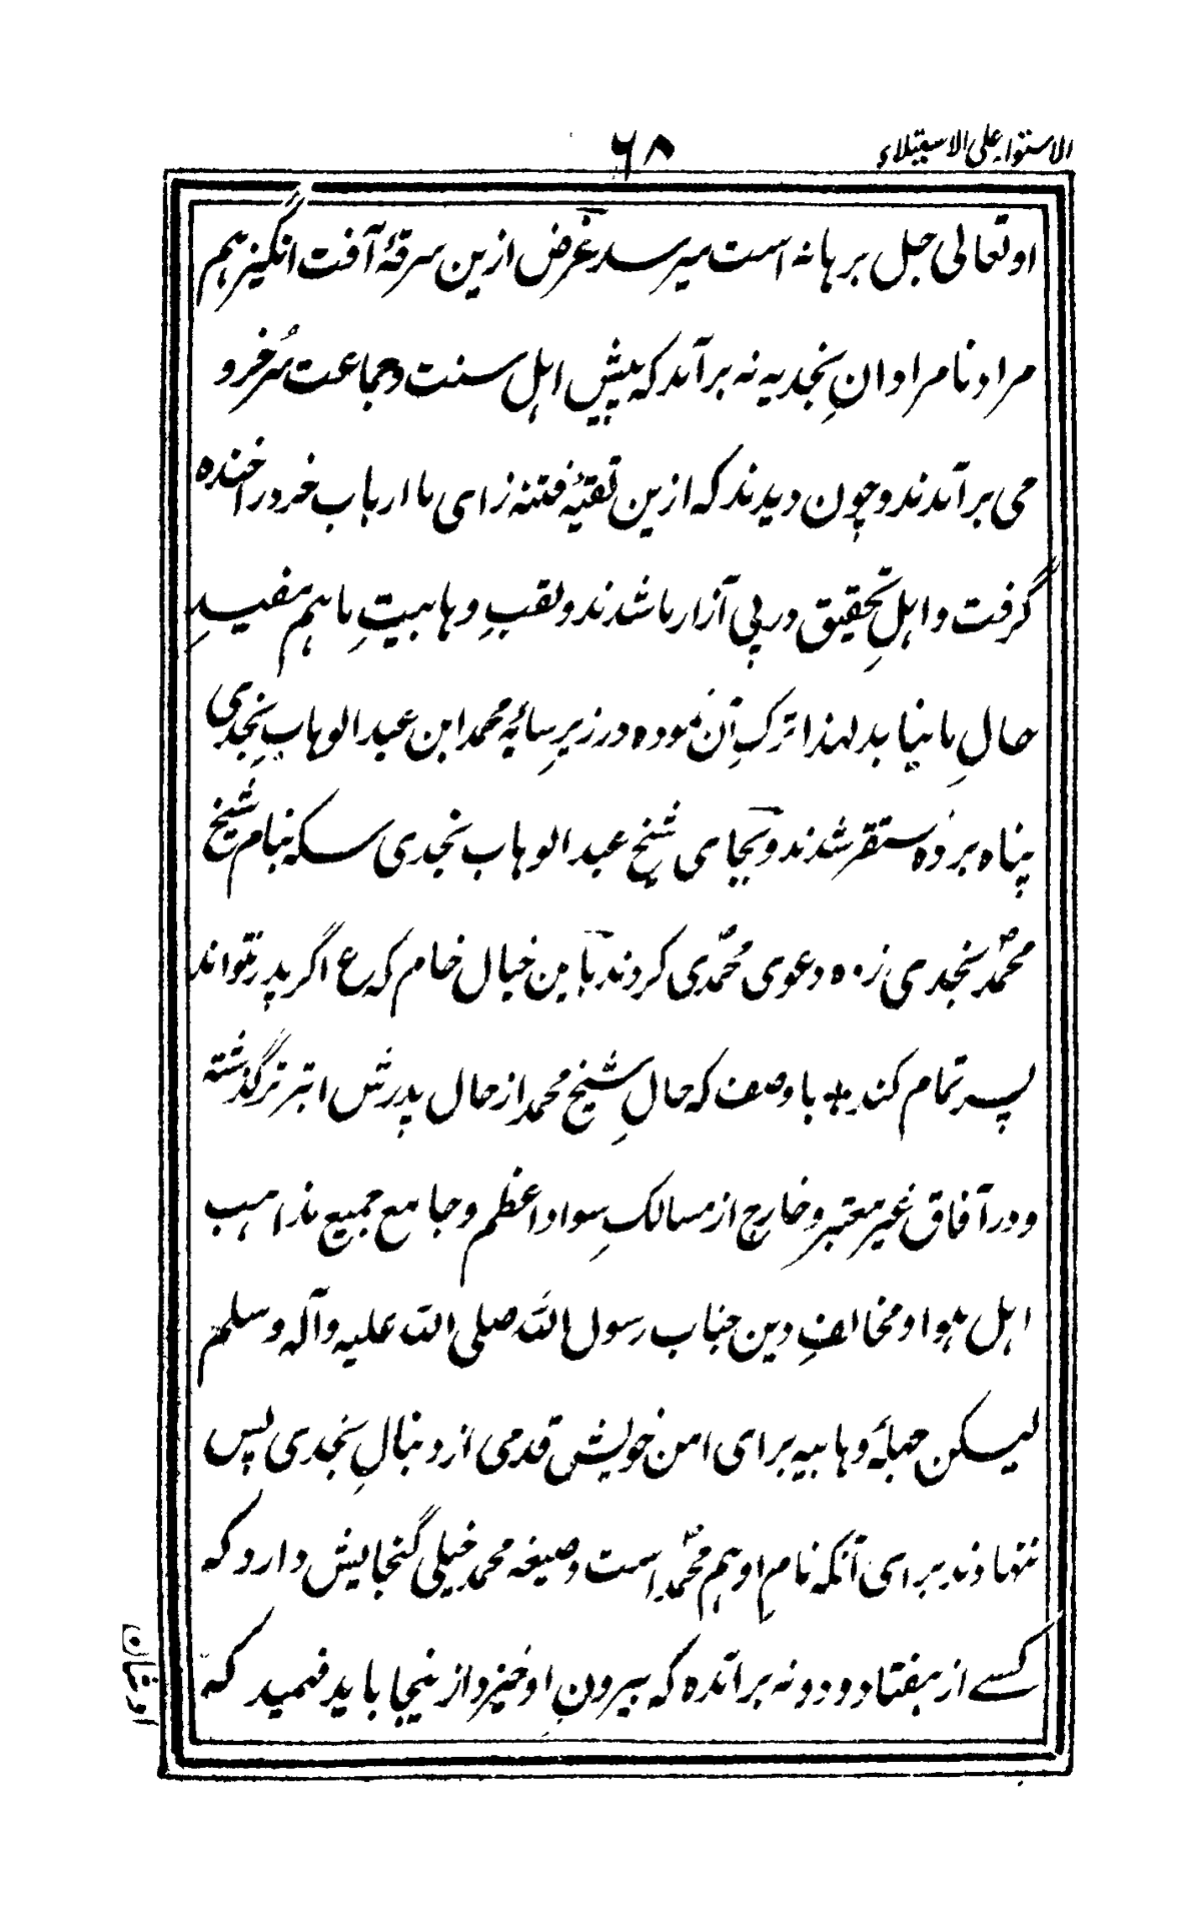 الاستواء علی الاستیلاء
۶۸
او تعالی جل برهانه است میرسد غرض ازین سرقۀ آفت انگیز هم
مراد نامرادانِ نجدیه نه برآمد که پیش اهل سنت و جماعت سُرخرو
می برآمدند و چون دیدند که ازین تقیۀ فتنه زای ما ارباب خرد را خنده
گرفت و اهلِ تحقیق در پی آزار ما شدند و لقبِ وهابیتِ ما هم مفیدِ
حالِ ما نیامد لهذا ترکِ آن نموده در زیرِ سایۀ محمد ابن عبد الوهابِ نجدی
پناه برده مستقر شدند و بجای شیخ عبد الوهاب نجدی سکه بنام شیخ
محمد نجدی زده دعوی محمدی کردند باین خیال خام که ع اگر پدر نتواند
پسر تمام کند * با وصف که حالِ شیخ محمد از حال پدرش ابتر تر گذشته
و در آفاق غیر معتبر و خارج از مسالکِ سواد اعظم و جامع جمیع مذاهب
اهل هوا و مخالفِ دین جناب رسول الله صلی الله علیه وآله وسلم
لیکن جهلۀ وهابیه برای امن خویش قدمی از دنبالِ نجدی پس
ننهادند برای آنکه نامِ او هم محمد است و صیغه محمد خیلی گنجایش دارد که
کسے از هفتاد و دو نه برآمده که بیرونِ او خیزد ازینجا باید فهمید که